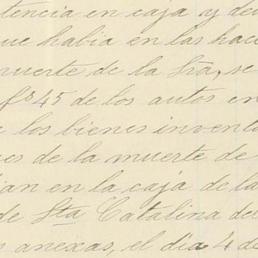 tencia en caja y de
que habia en las hac
muerte de la Sra, se
fs 45 de los autos en
e los bienes invent
es de la muerte de
ian en la caja de la
de Sta Catalina de
s anexas, el dia 4 de